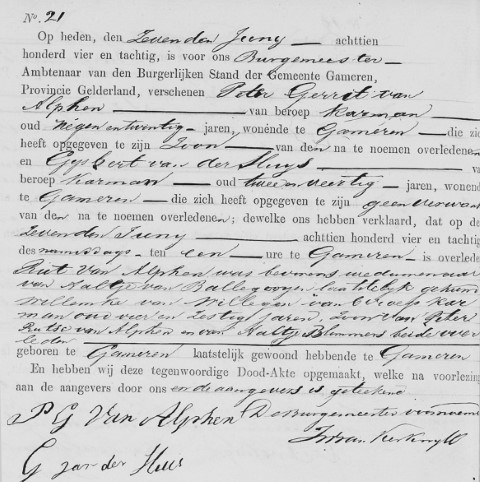 No. 21
Op heden, den Zevenden Juny achttien
honderd vier en tachtig, is voor ons Burgemeester
Ambtenaar van den Burgerlijken Stand der Gemeente Gameren,
Provincie Gelderland, verschenen Peter Gerrit van
Alphen van beroep Karman
oud Negen en twintig jaren, wonende te Gameren die zich
heeft opgegeven te zijn Zoon van den na te noemen overledene
en Gijsbert van der Sluys van
beroep Karman oud twee en veertig jaren, wonend
te Gameren die zich heeft opgegeven te zijn geen verwant
van den na te noemen overledenen; dewelke ons hebben verklaard, dat op de
Zevenden Juny achttien honderd vier en tachtig
des namiddags ten een ure te Gameren is overlede
Rut van Alphen was bevorens weduwenaar
van Aaltje van Ballegooyen laatstelijk gehuwd
Willemke van Willigen van beroep Kar
man oud vier en Zestig jaren, Zoon van Peter
Rutse van Alphen en van Aaltje Blummers beide over
leden
geboren te Gameren laatstelijk gewoond hebbende te Gameren
En hebben wij deze tegenwoordige Dood-Akte opgemaakt, welke na voorlezing
aan de aangevers door ons en de aangevers is geteekend.
P G Van Alphen De Burgemeester voornoemd
G van der Sluis